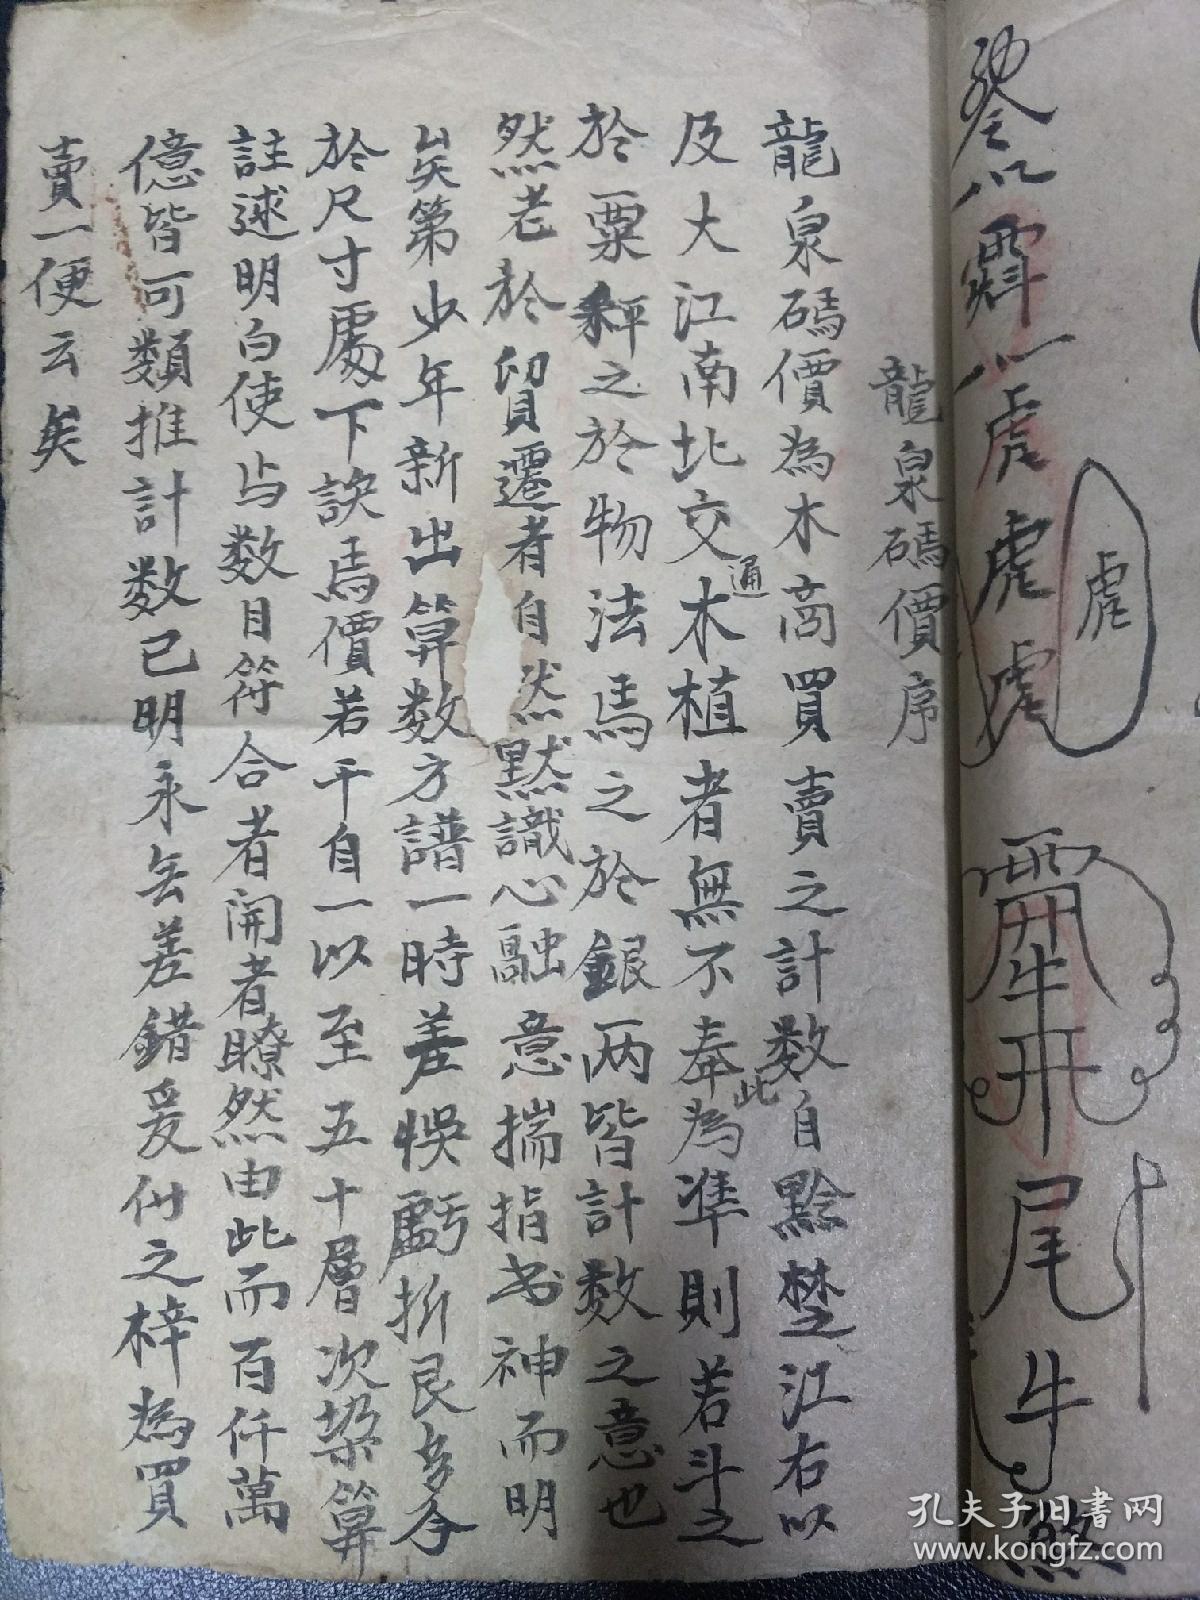 龍泉碼價序
龍泉碼價為木商買賣之計数自黔楚江右以
及大江南北交通木植者無不奉此為準則若斗之
於粟秤之於物法馬之於銀两皆計数之意也
然老於貿遷者自然默識心融意揣指出神而明
矣第少年新出算数方譜一時差悞虧折良多今
於尺寸處下訣馬價若干自一以至五十層次挈算
註述明白使与数目符合者開者瞭然由此而百仟萬
億皆可類推計数已明永無差錯爰付之梓為買
賣一便云矣
虎
虎
虎
虎
尾
牛
煞
孔夫子旧書网
www.kongfz.com